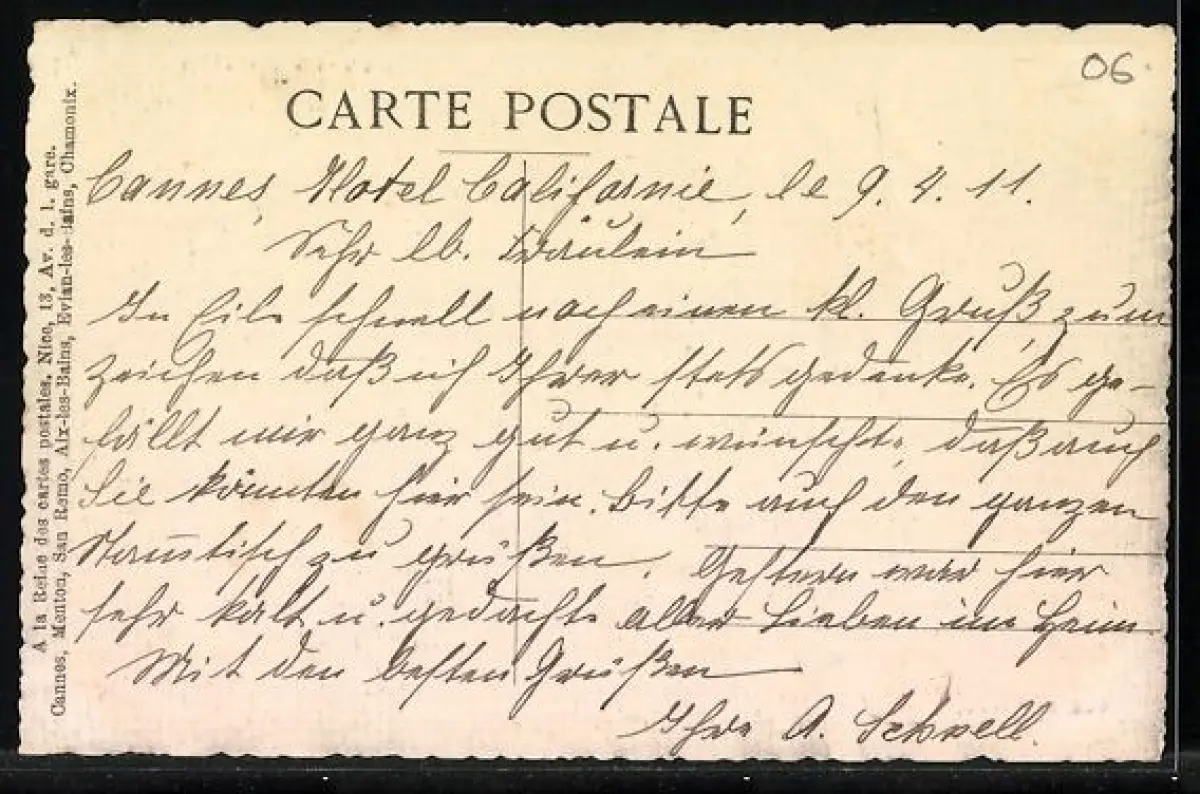 06
CARTE POSTALE
Cannes, Hotel Californie, le 9. 4. 11.
Sehr lb. Fräulein
In Eile schnell noch einen kl. Gruß zum
Zeichen daß ich Ihrer stets gedenke. Es ge-
fällt mir ganz gut u. wünschte, daß auch
Sie könnten hier sein. Bitte auch den ganzen
Stam̅tisch zu grüßen. Gestern war hier
sehr kalt u. gedachte aller Lieben im Heim.
Mit den besten Grüßen
Ihre A. Schnell.
A la Reine des cartes postales, Nice, 13, Av. d. l. gare.
Cannes, Menton, San Remo, Aix-les-Bains, Evian-les-Bains, Chamonix.